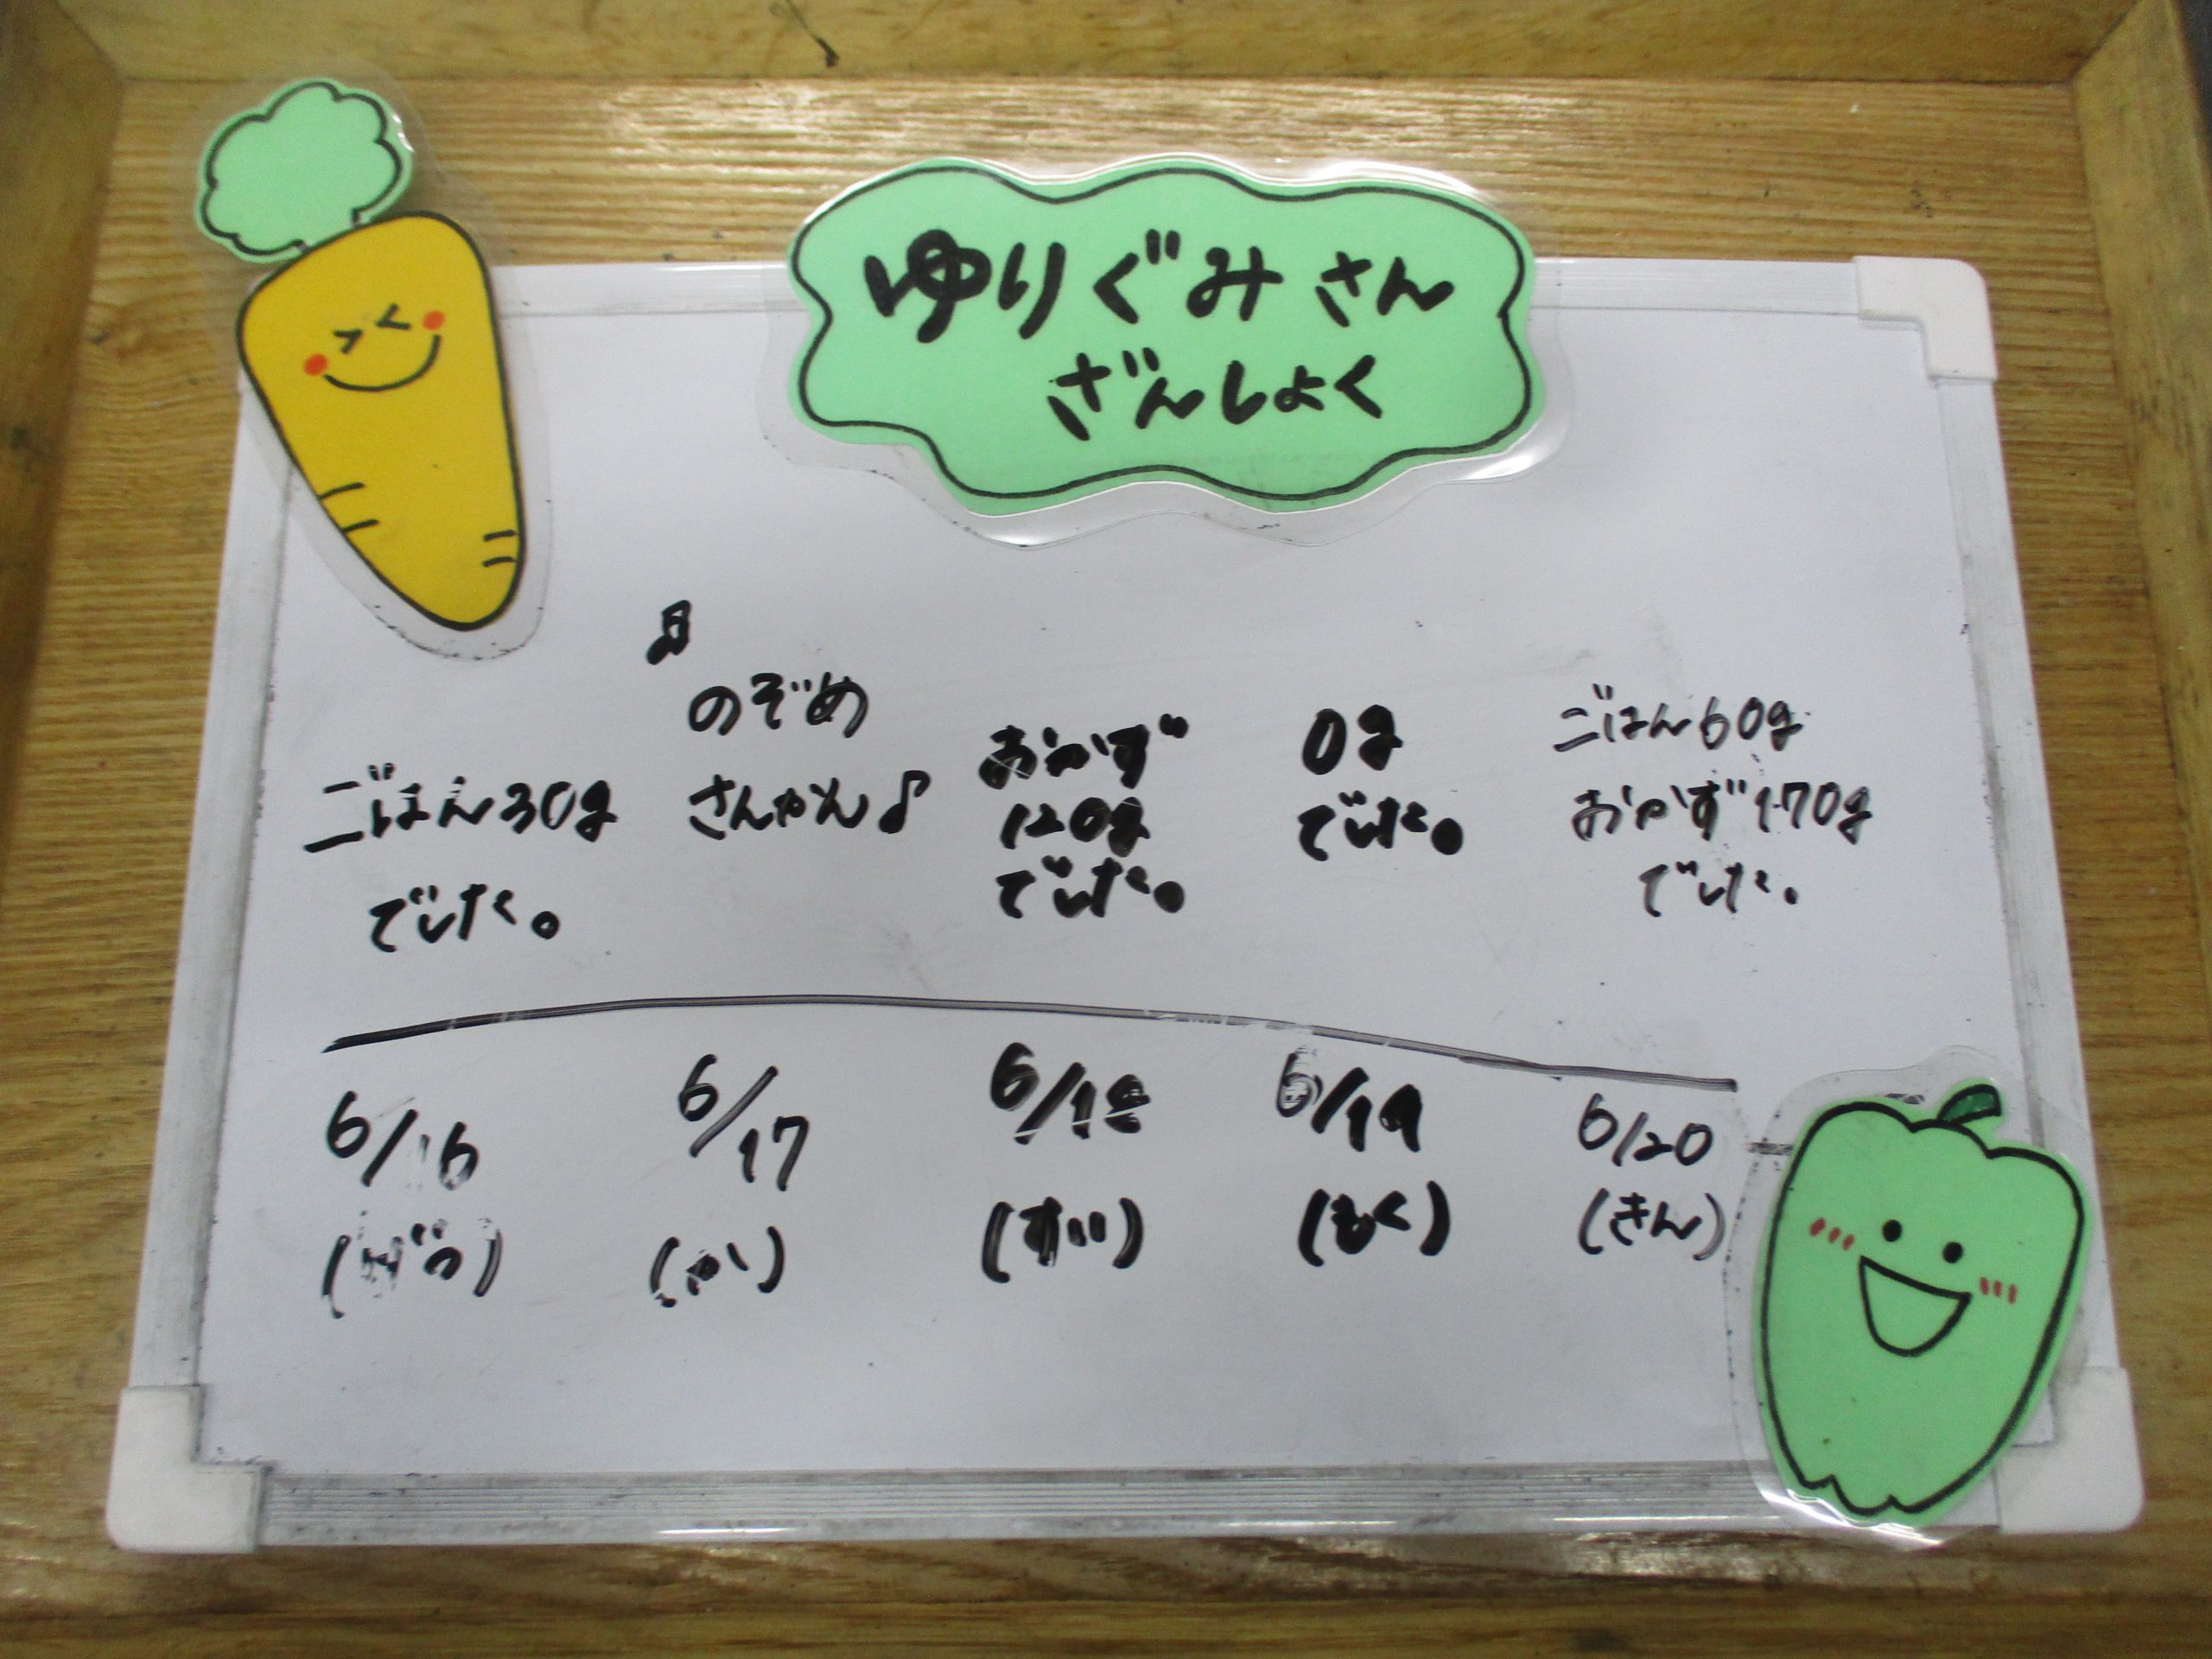 ゆりぐみさん
ざんしょく
ごはん30g
でした。
のぞめ
さんかん♪
おかず
120g
でした。
0g
でした。
ごはん60g
おかず170g
でした。
6/16
(げつ)
6/17
(か)
6/18
(すい)
6/19
(もく)
6/20
(きん)